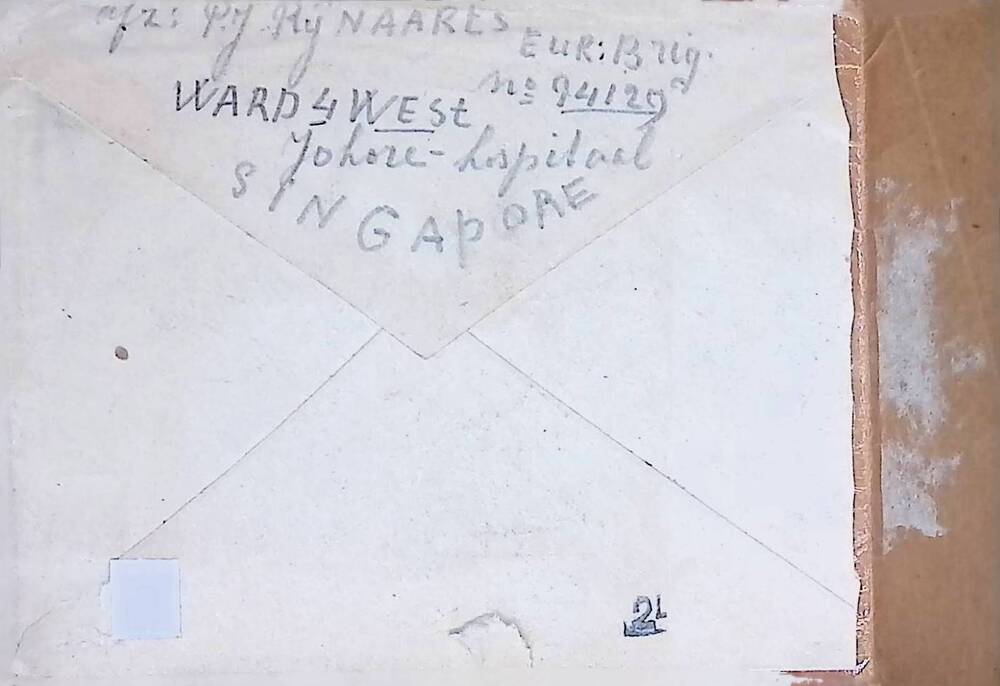 afz: P.J. RijNAARts
EUR: Brig.
WARD 4 WESt
No 94129
Johore-hospitaal
SINGAPORE
2L